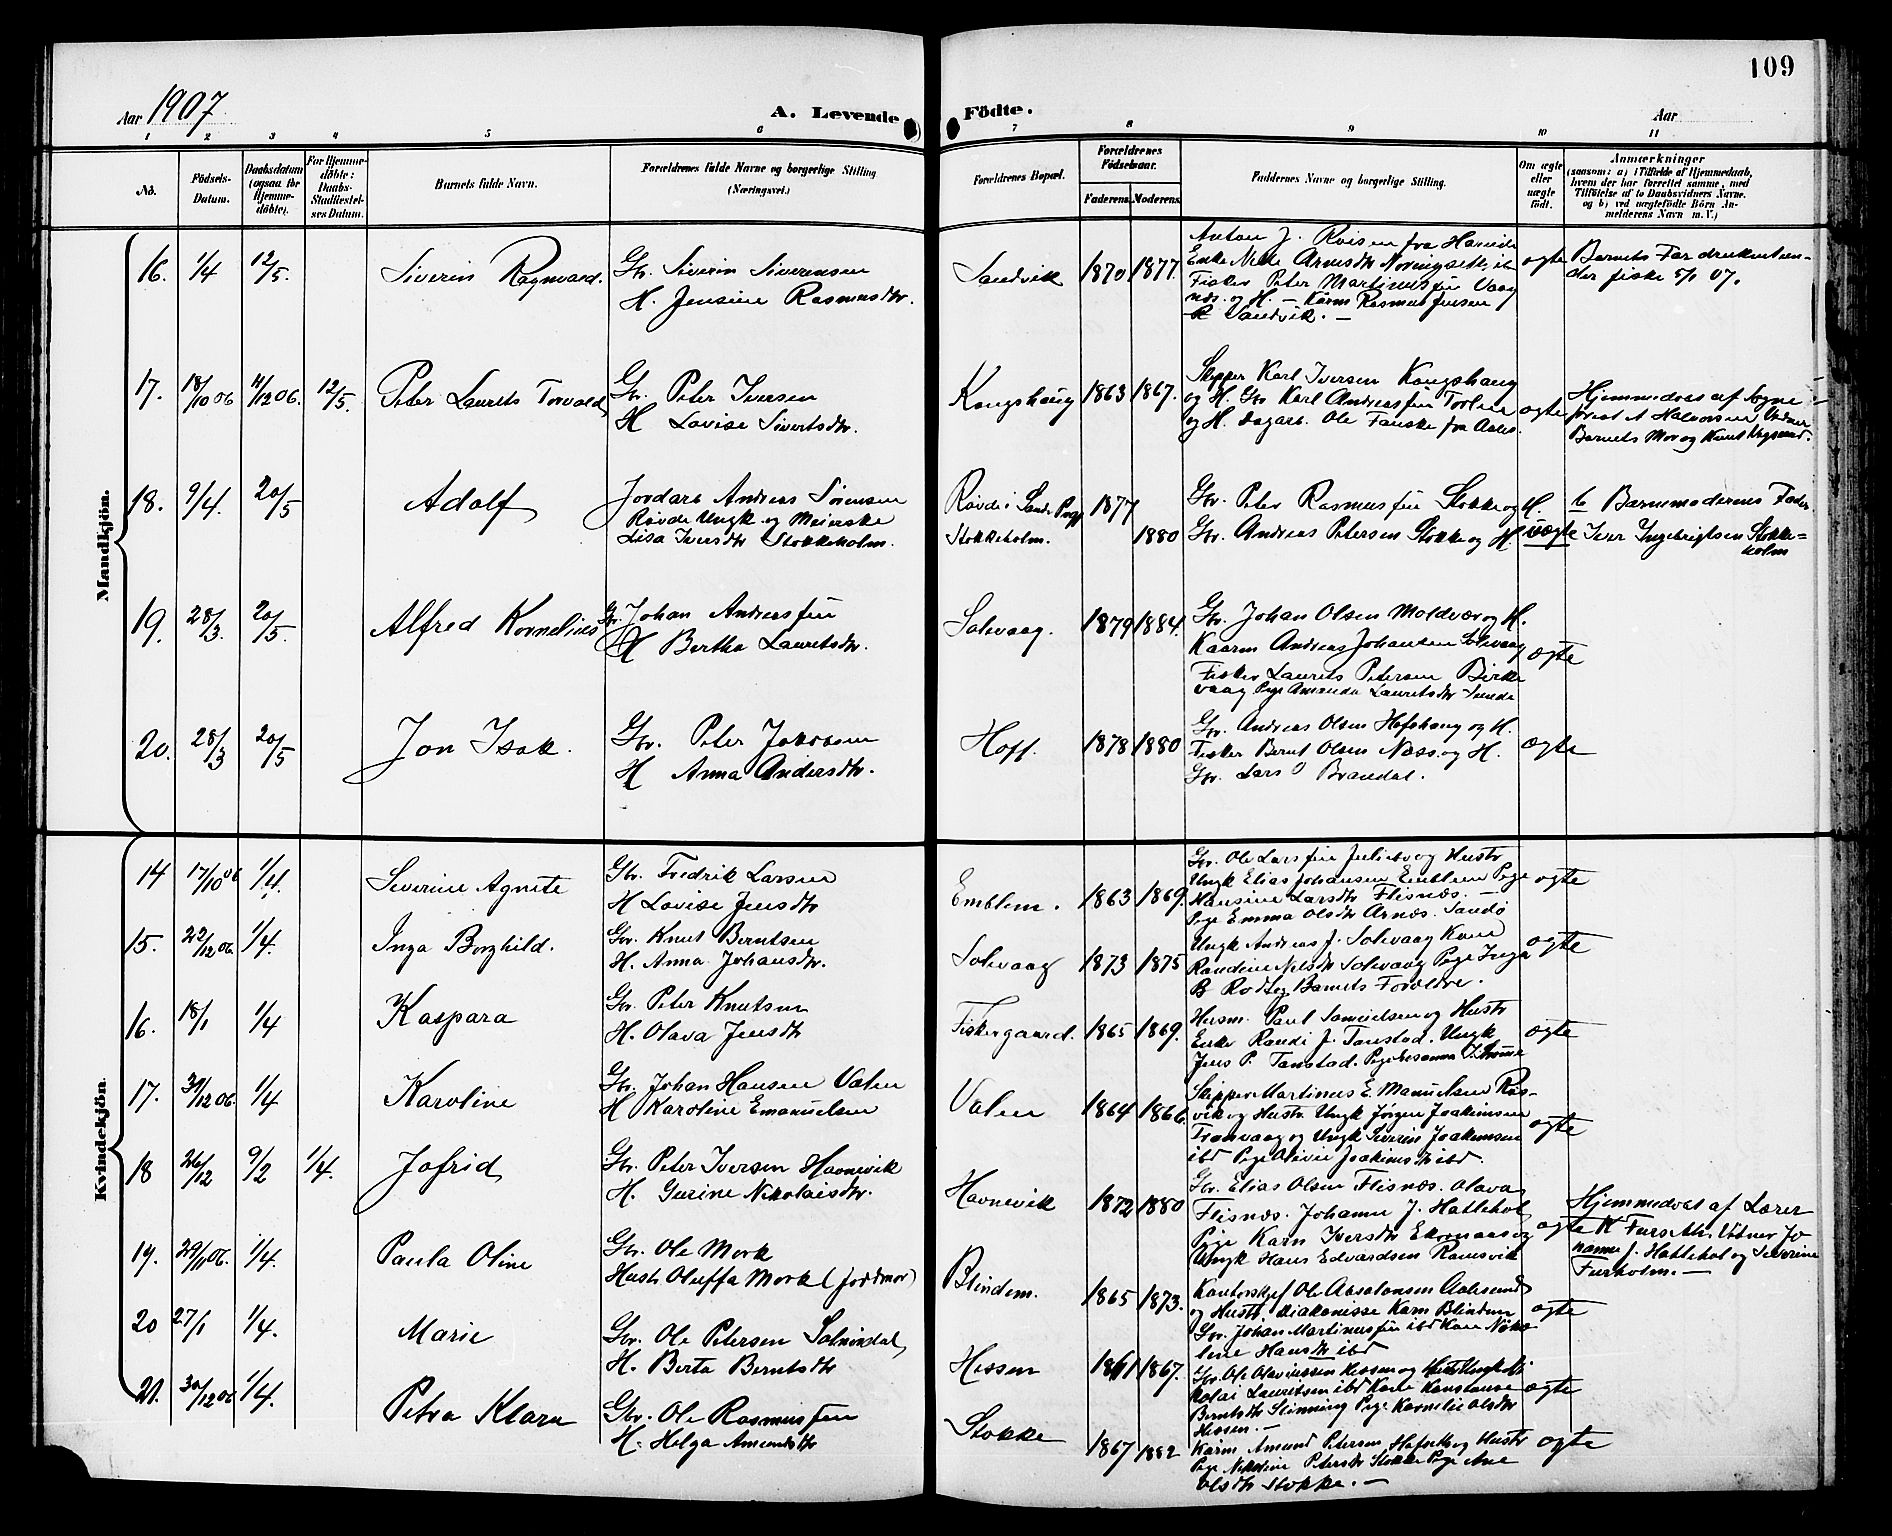 109
Aar 1907
A. Levende Födte.
Aar
1 2 3 4 5 6 7 8 9 10 11
No.
Födsels-Datum.
Daabsdatum (ogsaa for Hjemme-döbte).
For Hjemme-döbte: Daabs-Stadfæstel-ses Datum.
Barnets fulde Navn.
Forældrenes fulde Navne og borgerlige Stilling (Næringsvei.)
Forældrenes Bopæl.
Forældrenes Födselsaar.
Faderens. Moderens.
Faddernes Navne og borgerlige Stilling.
Om ægte eller uægte födt.
Anmærkninger
(saasom: a) i Tilfælde af Hjemmedaab, hvem der har forrettet samme, med Tilföielse af to Daabsvidners Navne, og b) ved uægtefödte Börn An-melderens Navn m. V.)
Mandkjön.
16. 1/4 12/5. Siverin Ragnvald.
Gbr. Siverin Siverensen
H. Jensine Rasmusdtr.
Sandvik 1870 1877.
Anton J. Roisen fra Hareide
Enke Arnesdtr
Fisker Peter Martinussen Vaag
næs. og H. – Karm Rasmus Jensen
Sandvik. –
ægte
Barnets Far druknet un-
der fiske 5/1 07.
17. 18/10 06 11/12 06. 12/5. Peter Laurits Torvald
Gbr. Peter Iversen
H Lovise Sivertsdtr.
Kongshaug 1863 1867.
Skipper Karl Iversen Kongshaug
og H. Gbr Karl Andreassen
og H. Dagarb. Ole Fauske fra Aales.
ægte
Hjemmedøbt af Sogne
prest A Halvorsen, Vidner
Barnets Mor og Knut
18. 9/4. 20/5 Adolf
Jordarb Andreas Sörensen
Røvde Ungk og Meierske
Lisa Iversdtr Stokkeholm.
Røvde i Sande Pgj 1877
Stokkeholm. 1880
Gbr. Peter Rasmussen Stokke og H.
Gbr. Andreas Petersen Stokke og H
uægte
b Barnemoderens Fader
Iver Ingebrigtsen Stokke=
holm
19. 28/3. 20/5. Alfred Kornelius
Gbr. Johan Andreassen
H Bertha Lauritsdtr.
Solevaag. 1879 1884.
Gbr. Johan Olsen Moldvær og H.
Kaarm Andreas Johansen Solevaag
Fisker Laurits Petersen Birke
vaag Pige Amanda Lauritsdtr Sunde
ægte
20. 28/3 20/5 Jon Isak.
Gbr. Peter Jakobsen
H Anna Andersdtr.
Hoff. 1878 1880
Gbr. Andreas Olsen Hofshaug og H.
Fisker Bernt Olsen Næss og H.
Gbr. Lars O Brandal.
ægte
Kvindekjön.
14 17/10 06 1/4. Severine Agnete
Gbr. Fredrik Larsen
H Lovise Jensdtr
Emblem. 1863 1869.
Gbr. Ole Larssen Julebø og Hustr
Ungk Elias Johansen Emblem Pige
Hansine Larsdtr Flisnæs. –
Pige Emma Olsdtr Arnæs. Sandö
ægte
15. 22/12 06. 1/4. Inga Borghild.
Gbr. Knut Berntsen
H. Anna Johansdtr.
Solevaag 1873 1875
Ungk Andreas J. Solevaag Kone
Randine Nilsdtr Solevaag Pige Inga
B Rodt og Barnets Forældre.
ægte
16. 18/1 1/4 Kaspara
Gbr. Peter Knutsen
H. Olava Jensdtr
Fiskergaard. 1865 1869.
Husm. Paul Samuelsen og Hustr
Enke Randi J. Tanstad. Ungk
Jens P. Tanstad. Pige Susanna
ægte
17. 31/12 06. 1/4 Karoline
Gbr. Johan Hansen Valen
H Karoline Emanuelsen
Valen 1864 1866.
Skipper Martinus E. Manuelsen Ras-
vik og Hustr Ungk Jørgen Joakimsen
Tranvaag og Ungk Severin Joakimsen
ibd Pige Olivie Joakimsdtr ibd.
ægte
18 26/12 9/2 1/4. Jofrid
Gbr. Peter Iversen Havnevik
H. Gurine Nikolaisdtr.
Havnevik 1872 1880
Gbr. Elias Olsen Flisnæs. Olava
Flisnæs. Johanne J. Hattehol
Pige Karn Iversdtr Ekornaas og
Ungk Hans Edvardsen Ramsvik
ægte
Hjemmedøbt af Lærer
K Furseth. Vidner Jo
hanne J. Hattehol og Severine
Furholm. –
19. 29/11 06. 1/4. Paula Oline
Gbr. Ole Mork
Hustr Oluffa Mork (jordmor)
Blindem. 1865 1873.
Kontorchef Ole Absalonsen Aalesund
og Hustr Diakonisse Karn Blindem
Gbr. Johan Martinussen ibd Kone Niko
line Hansdtr ibd
ægte
20 27/1 1/4. Marie
Gbr. Ole Petersen
H. Berta Berntsdtr
Hessen 1861 1867.
Gbr. Ole Olaviussen Hessen og Hustr Ungk Ni
kolai Lauritsen ibd Kone Konstanse
Berntsdtr Slinning Pige Kornelie Olsdtr
Hessen. –
ægte
21. 30/12 06 1/4. Petra Klara
Gbr. Ole Rasmussen
H. Helga Amundsdtr
Stokke 1867 1882
Karm Amund Petersen og Hustr
Pige Nikoline Petersdtr Stokke Pige Ane
Olsdtr Stokke. –
ægte